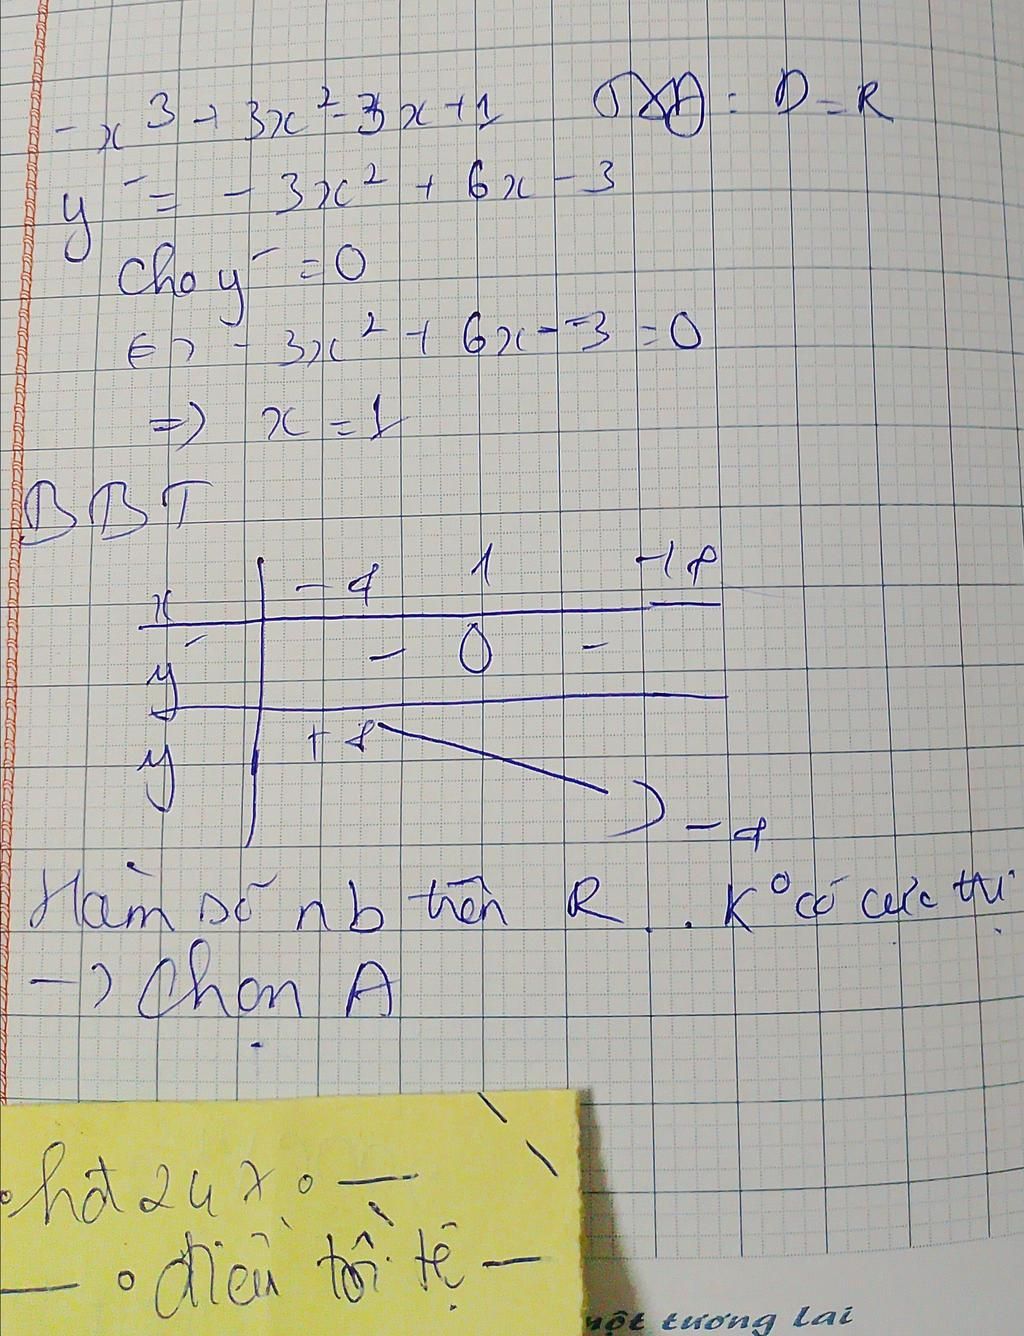 -x³ + 3x² - 3x + 1 TXĐ : D = R
y' = - 3x² + 6x - 3
Cho y' = 0
<=> - 3x² + 6x - 3 = 0
=> x = 1
BBT
x -∞ 1 +∞
y' - 0 -
y +∞ -∞
Hàm số nb trên R. K° có cực trị
-> Chọn A
điều tồi tệ
một tương lai